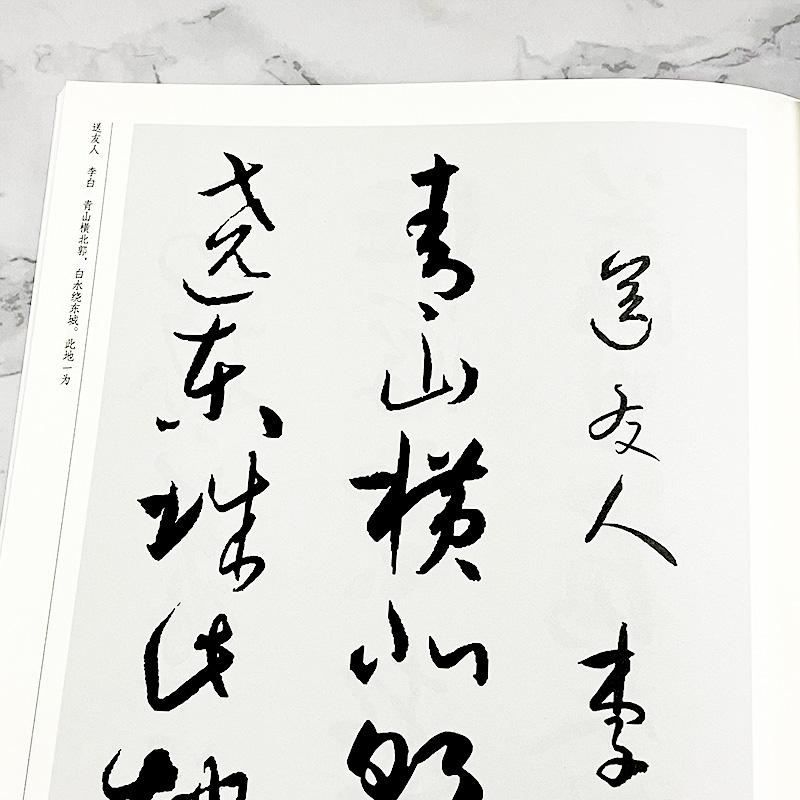 送友人 李
青山橫北郭
遶東城此地
送友人 李白 青山横北郭，白水绕东城。此地一为